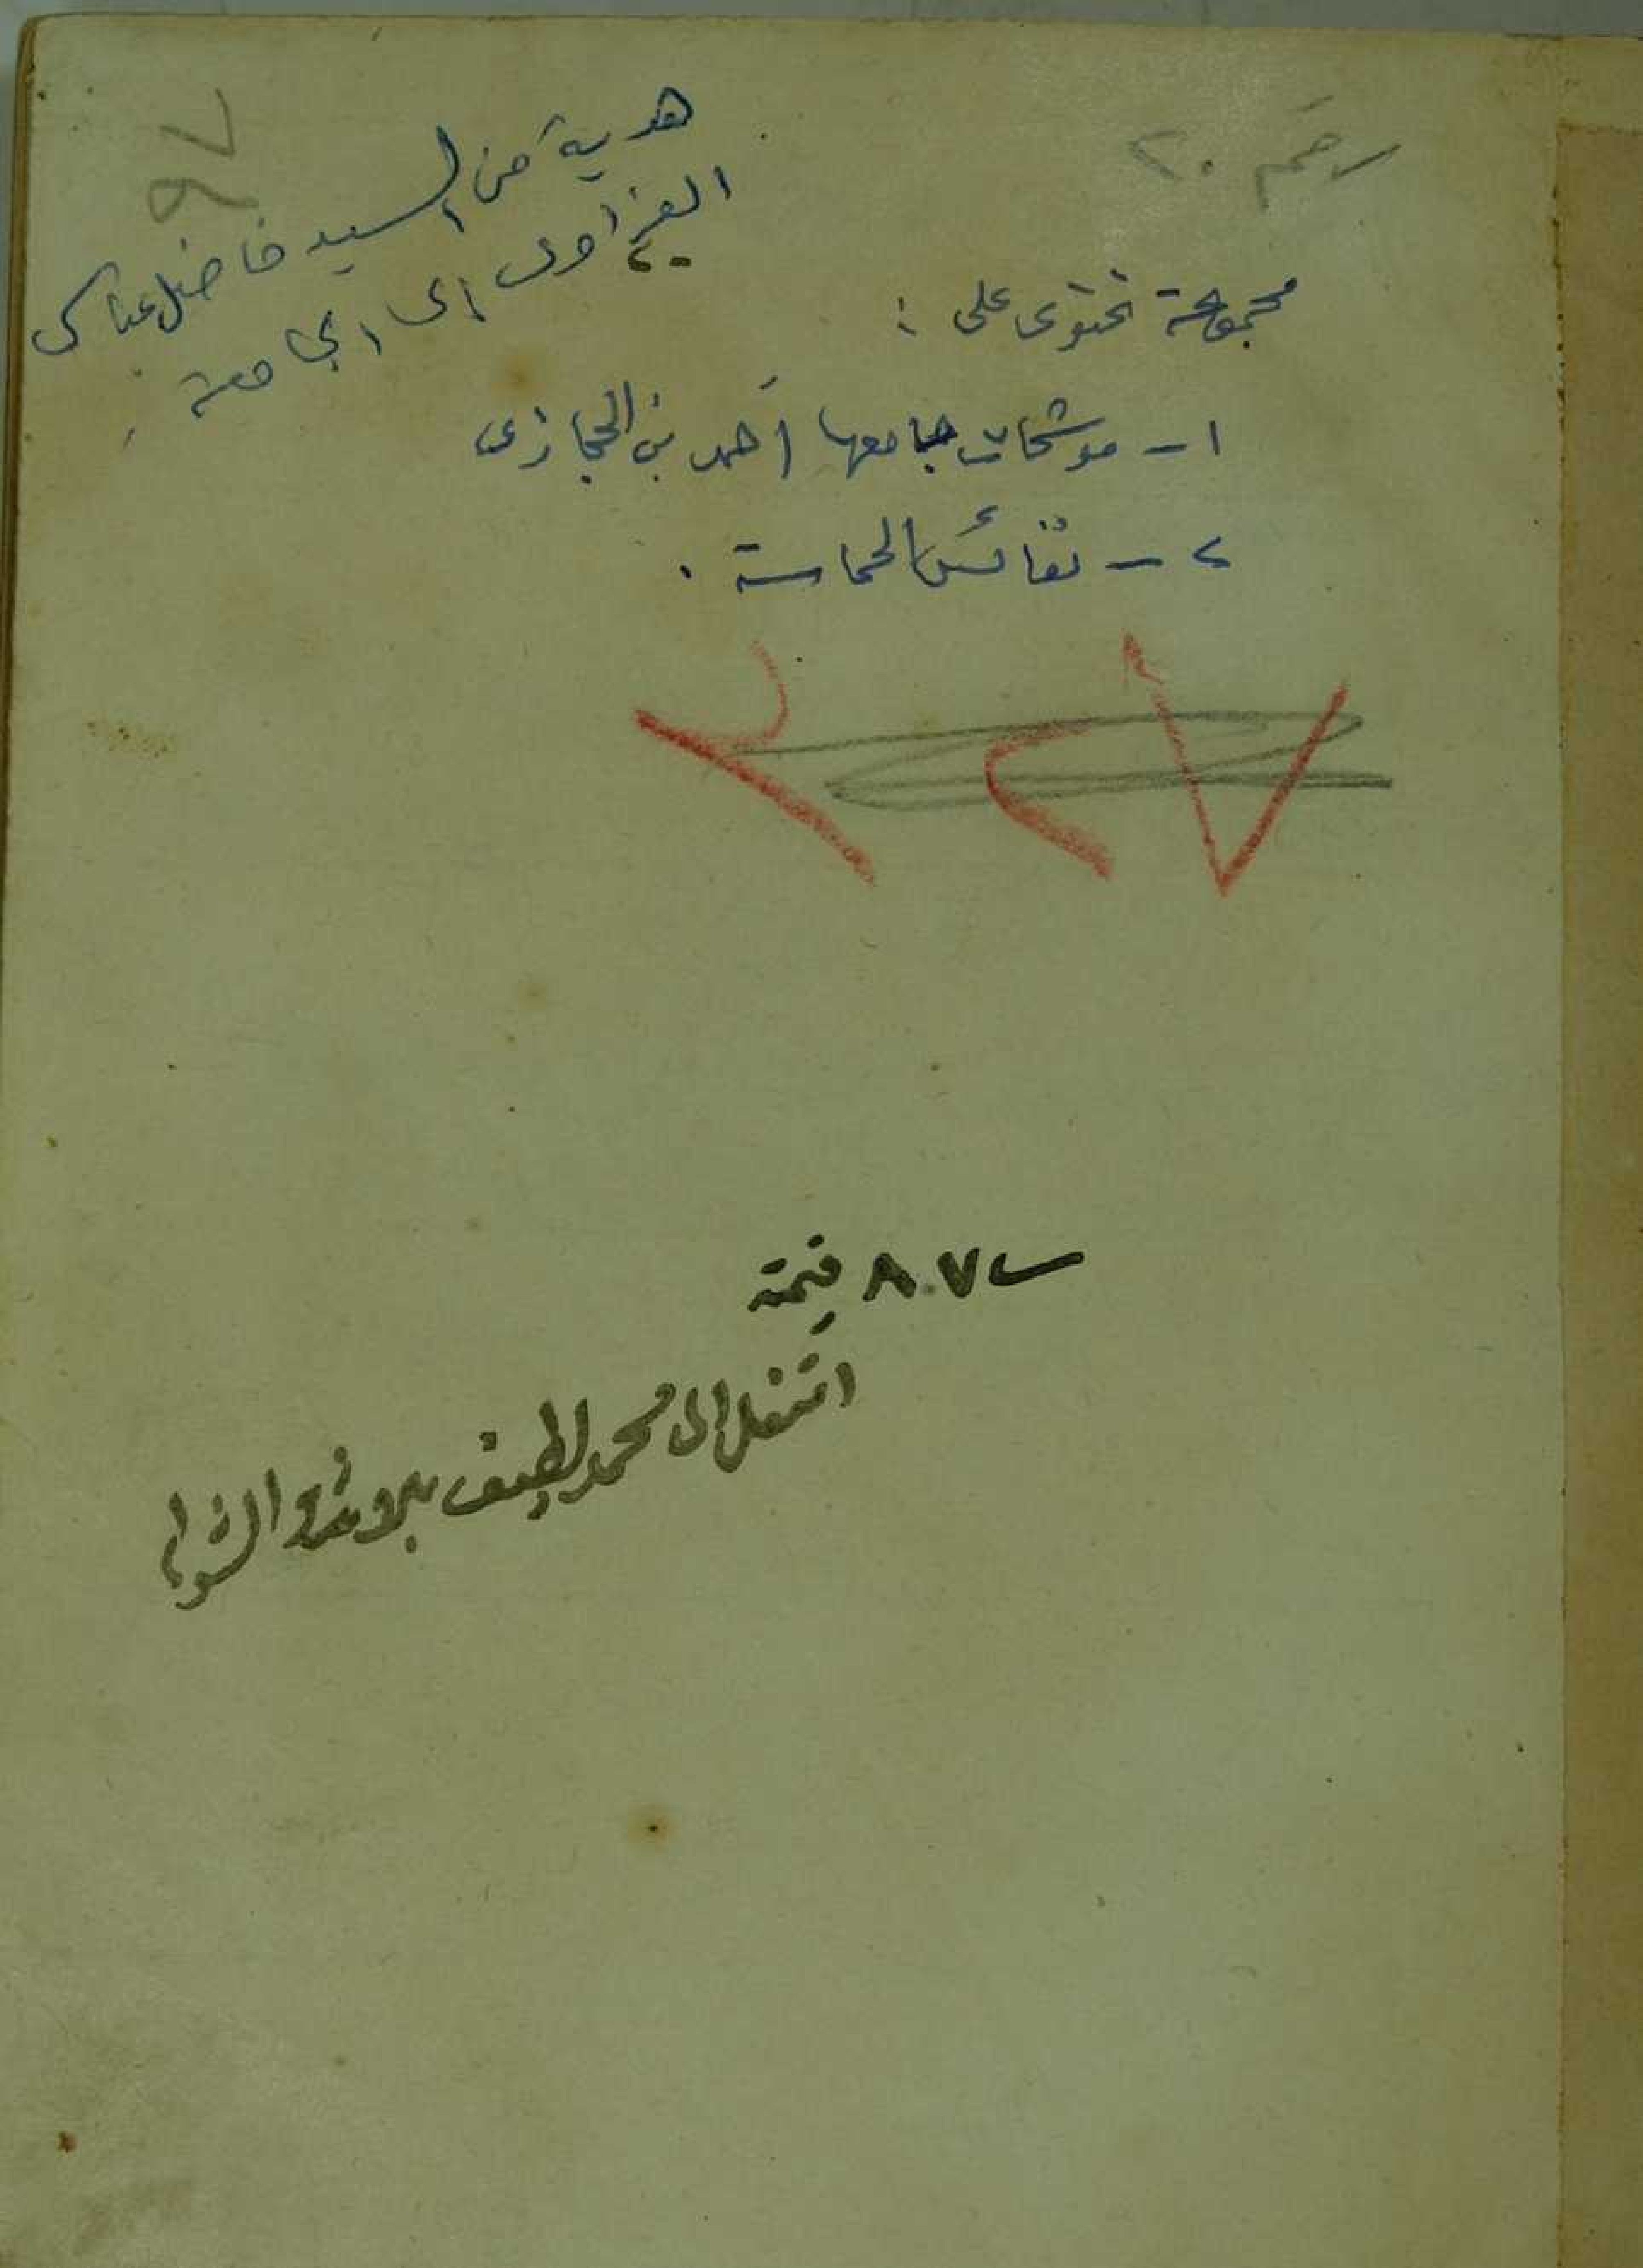 رقم ٢٠
هدية من السيد فاضل عباس
العزاوي الى الجامعة
مجموعة تحتوى على :
١ - موشحات جامعها أحمد بن الحجازى
٢ - نفائس الحماسة .
٨٠٧ قيمة
انتقل الى محمد لطيف